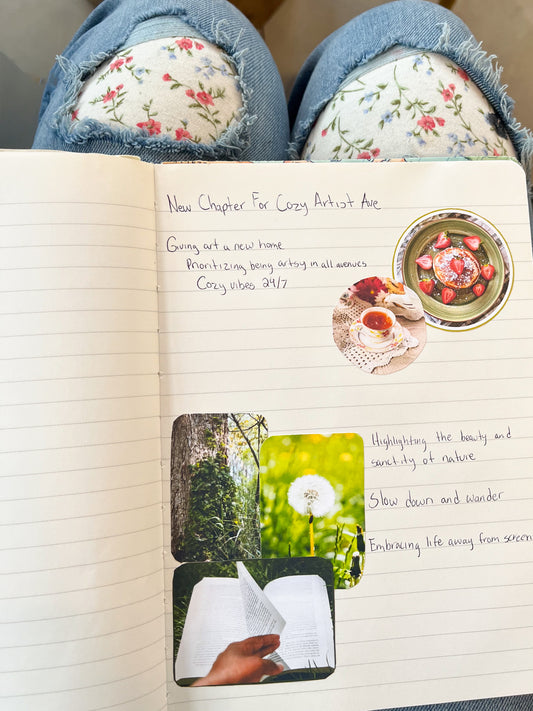 New Chapter For Cozy Artist Ave
Giving art a new home
Prioritizing being artsy in all avenues
Cozy vibes 24/7
Highlighting the beauty and
sanctity of nature
Slow down and wander
Embracing life away from screen